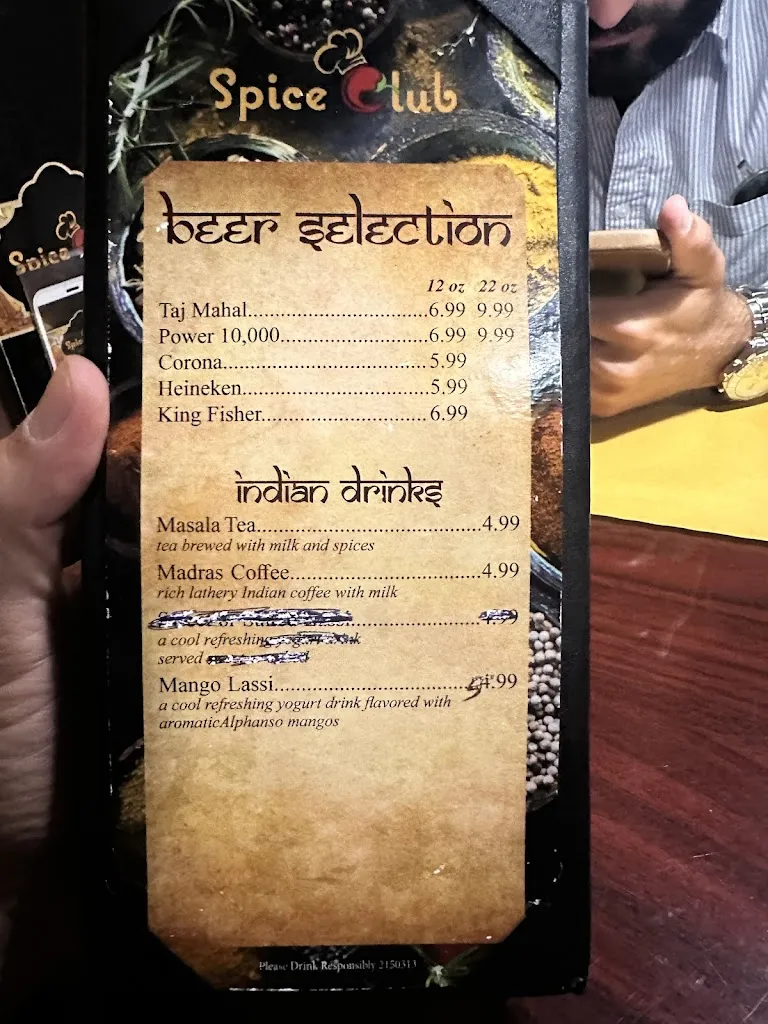 Spice Club
Spice
beer selection
12 oz 22 oz
Taj Mahal..................................6.99 9.99
Power 10,000............................6.99 9.99
Corona.......................................5.99
Heineken...................................5.99
King Fisher...............................6.99
indian drinks
Masala Tea..........................................4.99
tea brewed with milk and spices
Madras Coffee....................................4.99
rich lathery Indian coffee with milk
a cool refreshing
served
Mango Lassi.......................................5.99
a cool refreshing yogurt drink flavored with
aromaticAlphanso mangos
Please Drink Responsibly 2150313